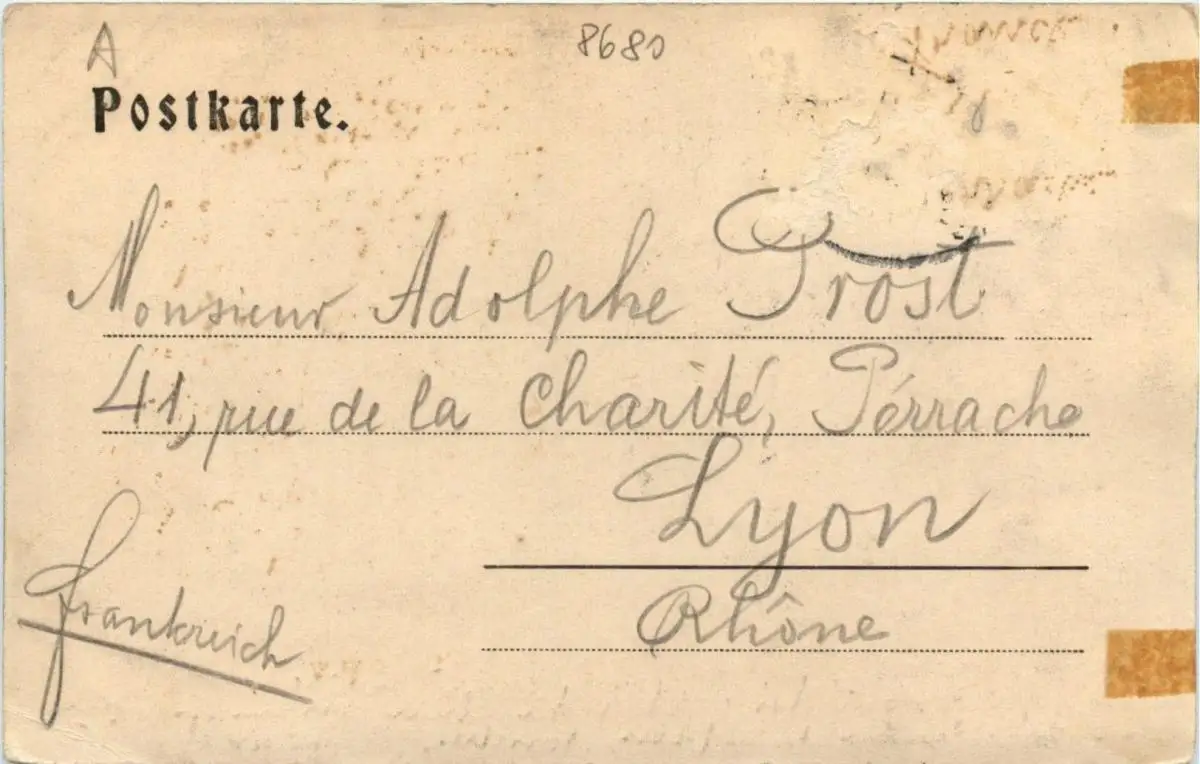 A
8680
Postkarte.
Monsieur Adolphe Prost
41, rue de la Charité, Pérrache
Lyon
Rhône
Frankreich